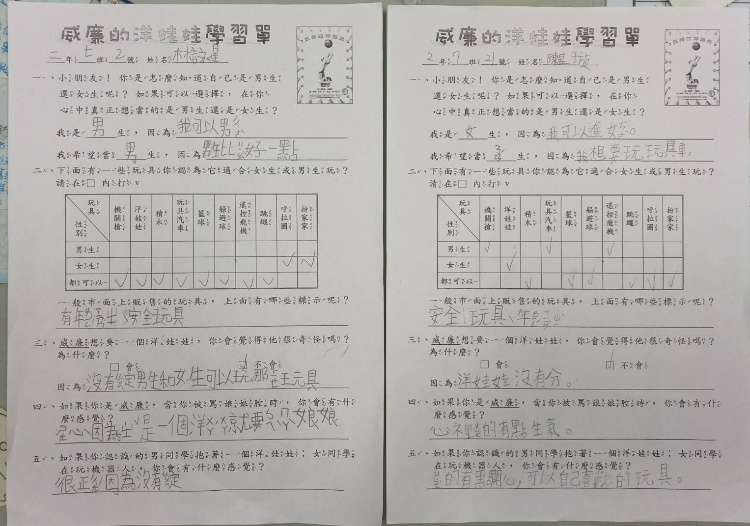 威廉的洋娃娃學習單
二年5班2號 姓名
一、小朋友!你是怎麼知道自己是男生
還是女生呢?如果可以選擇,在你
心中真正想當的是男生還是女生?
我是男生,因為我可以
我希望當男生,因為 一點
二、下面有一些玩具你認為它適合女生或男生玩?
請在□內打v
玩具 性別 機關槍 洋娃娃 積木 玩具汽車 籃球 躲避球 遙控飛機 跳繩 呼拉圈 扮家家
男生
女生 ✓ ✓
都可以 ✓ ✓ ✓ ✓ ✓ ✓ ✓ ✓
一般市面上販售的玩具,上面有哪些標示呢?
有年 安全玩具
三、威廉想要一個洋娃娃,你會覺得他很奇怪嗎?
為什麼?
□會 □不會
因為:沒有 男生和女生可以玩那 玩具
四、如果你是威廉,當你被罵娘娘腔時,你會有什
麼感覺?
因為 是一個洋 就 娘娘
五、如果你認識的男同學抱著一個洋娃娃;女同學
在玩機器人,你會有什麼感覺?
很正 因為沒有
威廉的洋娃娃學習單
2年7班21號 姓名
一、小朋友!你是怎麼知道自己是男生
還是女生呢?如果可以選擇,在你
心中真正想當的是男生還是女生?
我是女生,因為我可以進女
我希望當 生,因為我想要玩玩具車。
二、下面有一些玩具你認為它適合女生或男生玩?
請在□內打v
玩具 性別 機關槍 洋娃娃 積木 玩具汽車 籃球 躲避球 遙控飛機 跳繩 呼拉圈 扮家家
男生 ✓ ✓ ✓
女生 ✓
都可以 ✓ ✓ ✓ ✓ ✓ ✓
一般市面上販售的玩具,上面有哪些標示呢?
安全玩具、年
三、威廉想要一個洋娃娃,你會覺得他很奇怪嗎?
為什麼?
□會 □不會
因為:洋娃娃沒有分。
四、如果你是威廉,當你被罵娘娘腔時,你會有什
麼感覺?
心裡 的有點生氣。
五、如果你認識的男同學抱著一個洋娃娃;女同學
在玩機器人,你會有什麼感覺?
的有點開心,可以自己喜歡的玩具。